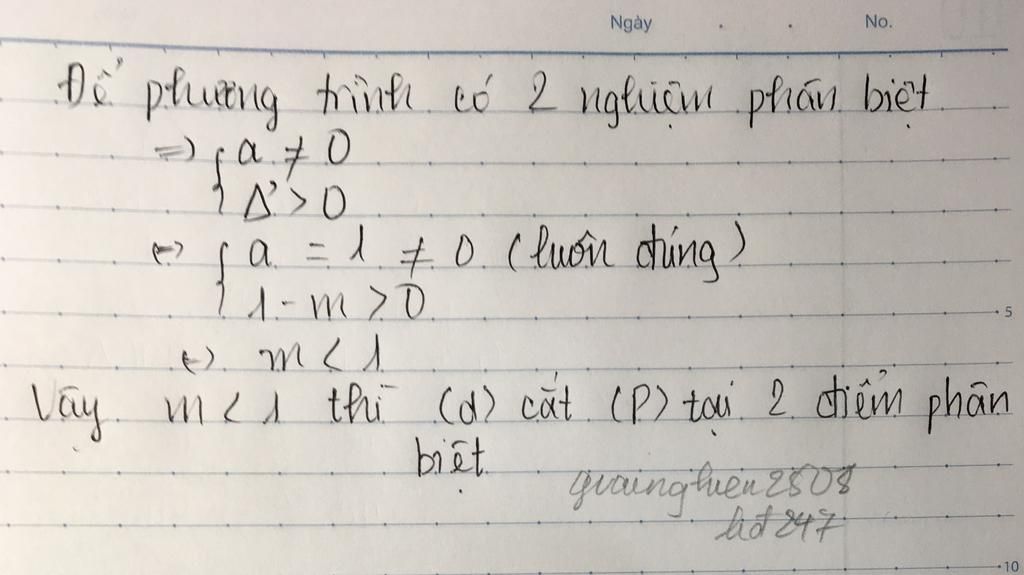 Ngày . . No.
Để phương trình có 2 nghiệm phân biệt
=> { a ≠ 0
Δ' > 0
<=> { a = 1 ≠ 0 (luôn đúng)
1 - m > 0
5
<=> m < 1
Vậy m < 1 thì (d) cắt (P) tại 2 điểm phân
biệt
2808
hđ247
10